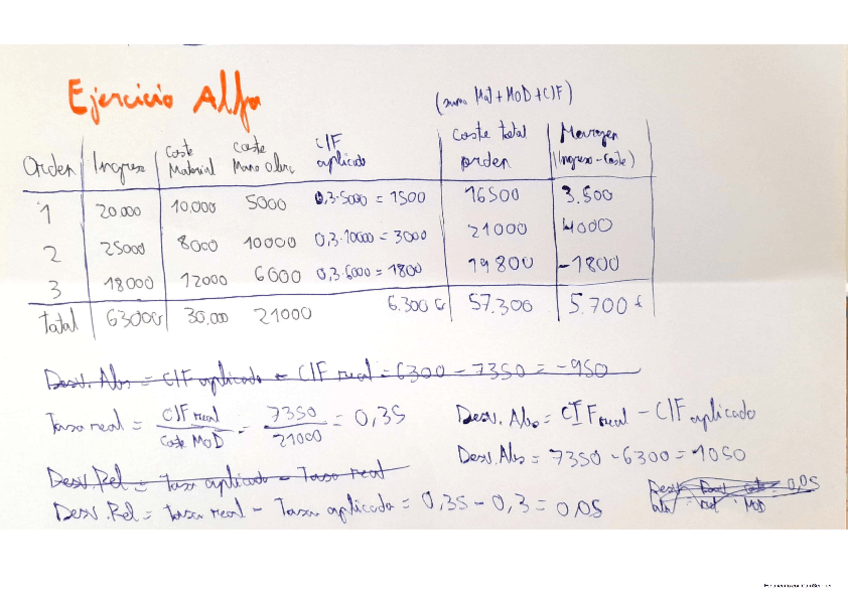 Ejercicio Alfa
(suma Mat + MOD + CIF)
Orden | Ingreso | Coste Material | Coste Mano Obra | CIF aplicado | Coste total orden | Margen (Ingreso - Coste)
1 | 20.000 | 10.000 | 5000 | 0,3·5000 = 1500 | 16500 | 3.500
2 | 25000 | 8000 | 10000 | 0,3·10000 = 3000 | 21000 | 4000
3 | 18000 | 12000 | 6000 | 0,3·6000 = 1800 | 19800 | -1800
Total | 63000 | 30.000 | 21000 | 6.300 € | 57.300 | 5.700 €
Desv. Abs = CIF aplicado - CIF real = 6300 - 7350 = -950
Tasa real = CIF real / Coste MOD = 7350 / 21000 = 0,35
Desv. Abs = CIF real - CIF aplicado
Desv. Abs = 7350 - 6300 = 1050
Desv. Rel = Tasa aplicado - Tasa real
Desv. Rel = Tasa real - Tasa aplicada = 0,35 - 0,3 = 0,05
= 0,05